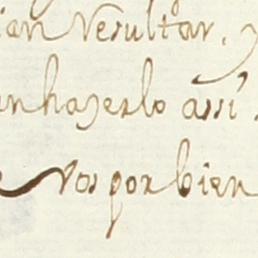 ian Resultar, y
en hazerlo assi
e Vos por bien